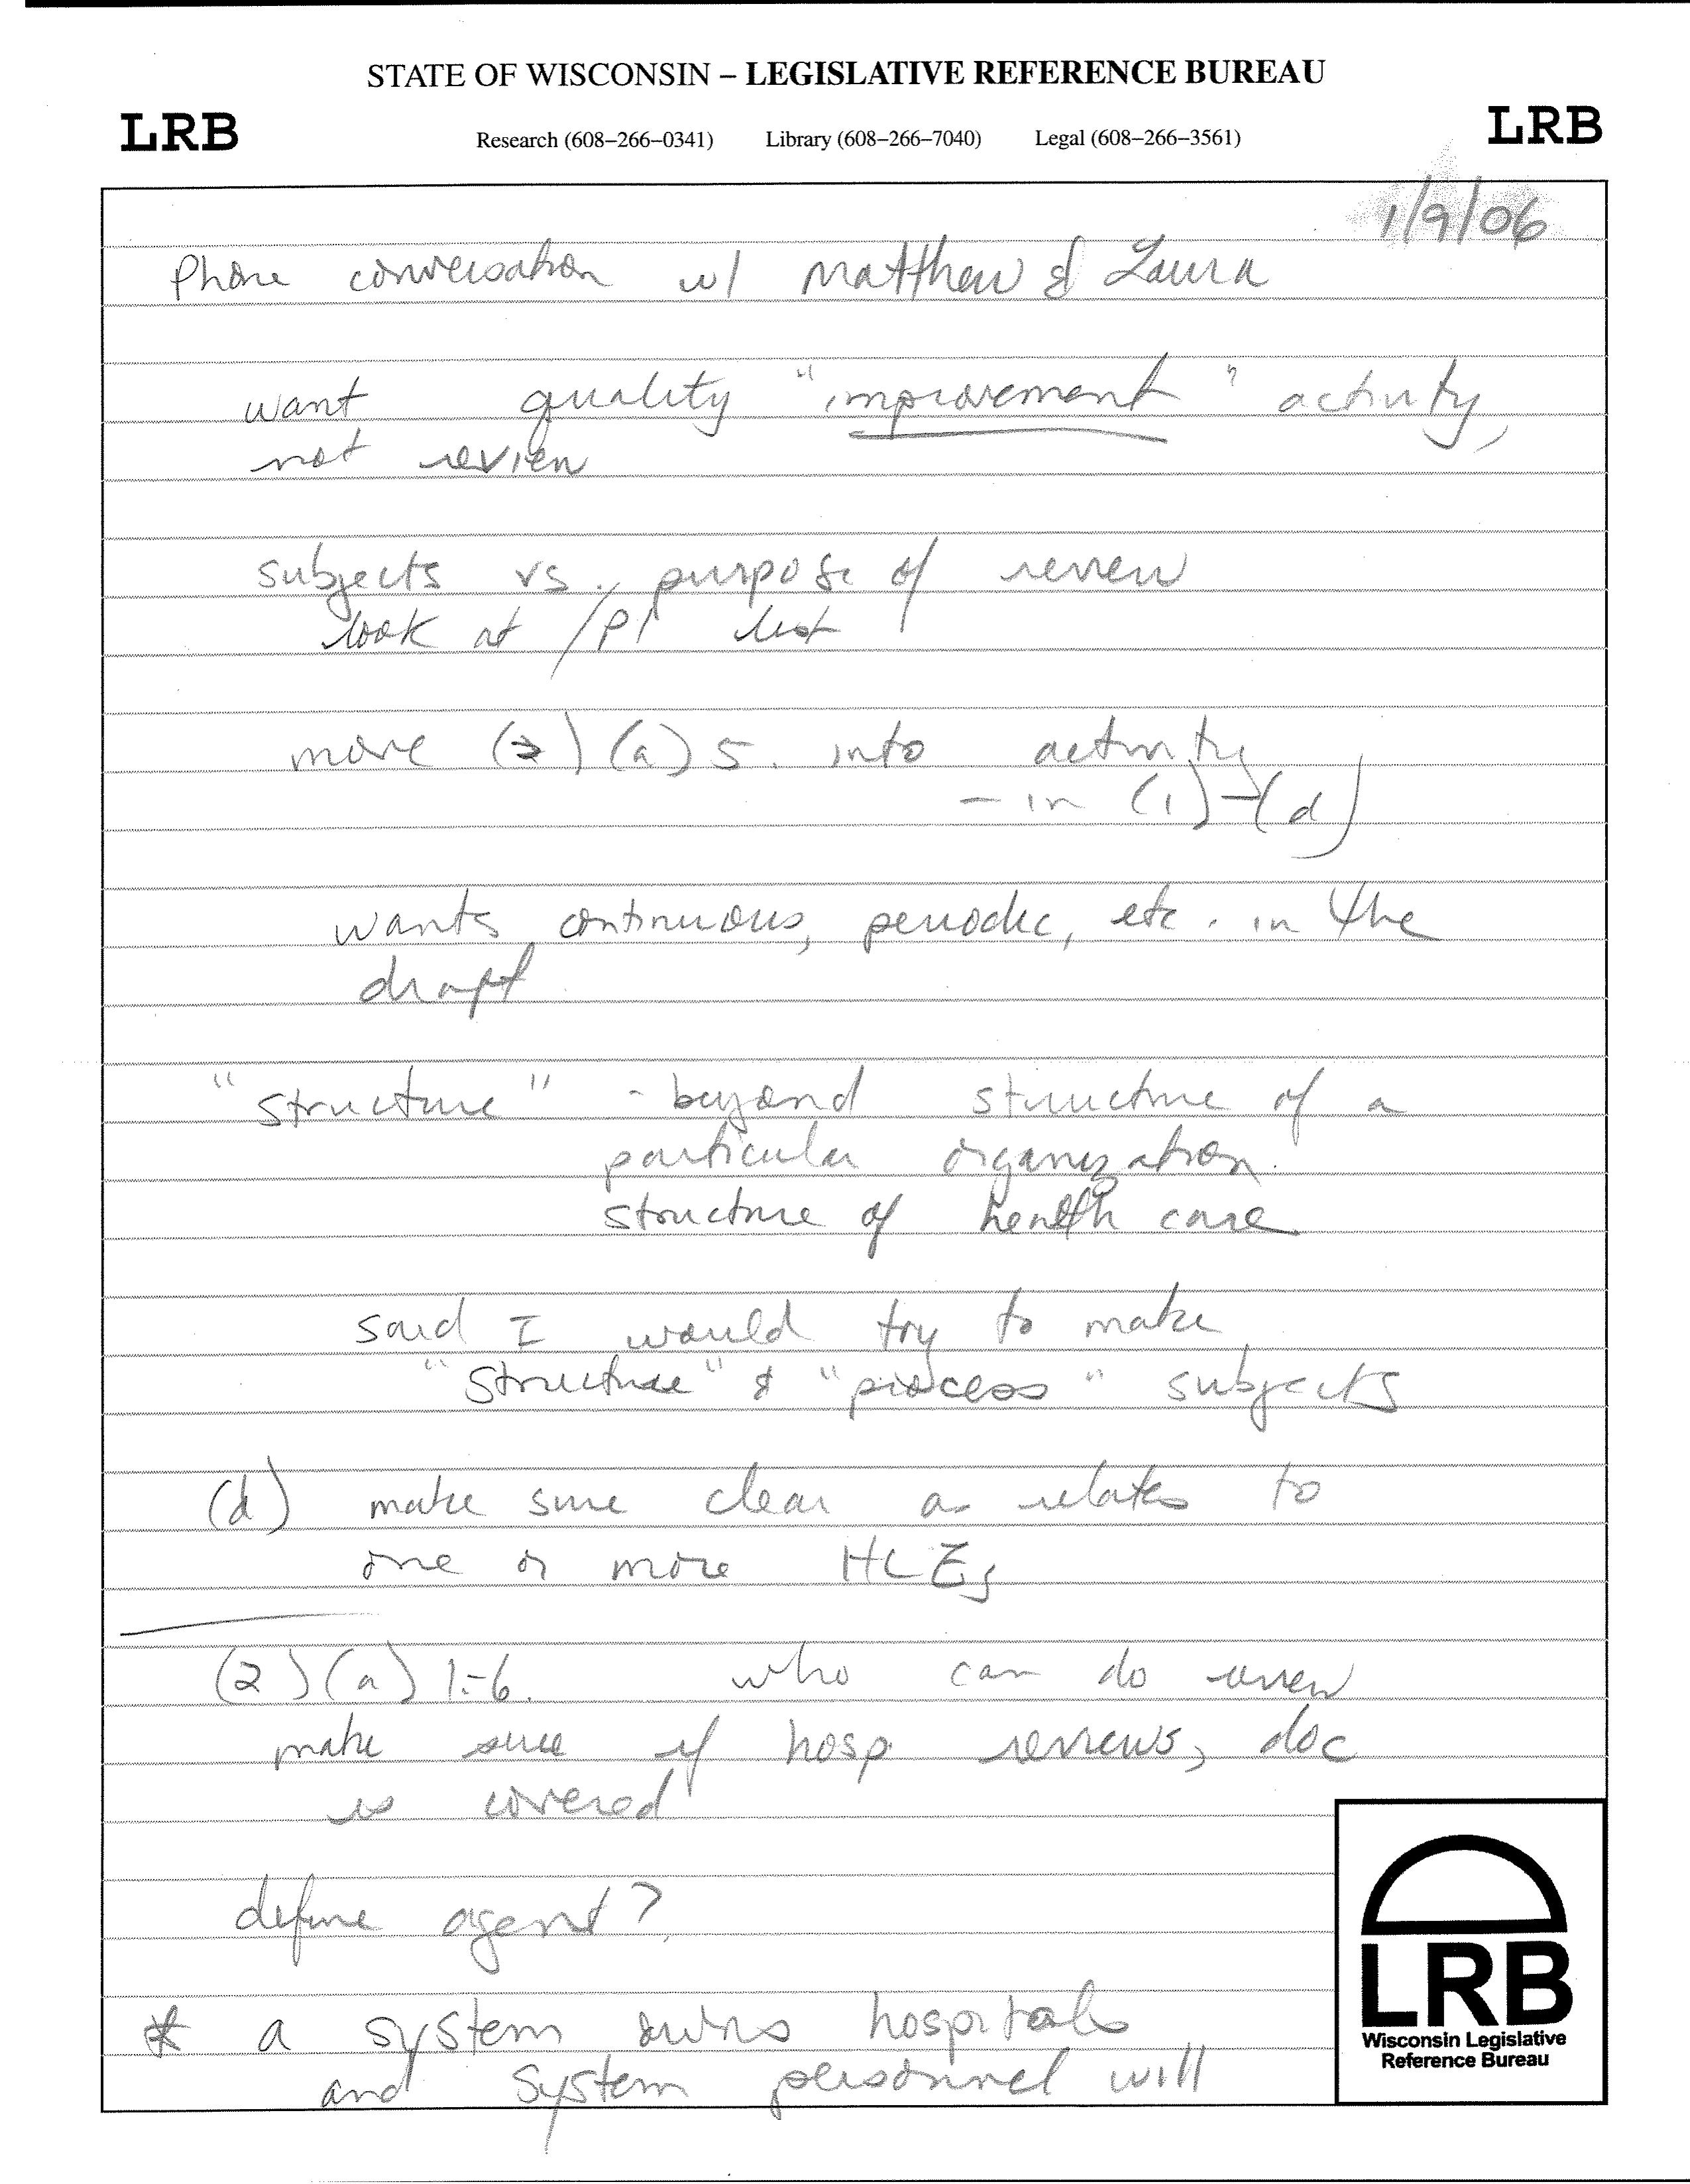 STATE OF WISCONSIN – LEGISLATIVE REFERENCE BUREAU
LRB
Research (608–266–0341) Library (608–266–7040) Legal (608–266–3561)
LRB
1/9/06
Phone conversation w/ Matthew & Laura
want quality "improvement" activity,
not review
subjects vs. purpose of review
look at /P1 list
move (2)(a)5. into activity
– in (1)-(d)
wants continuous, periodic, etc. in the
draft
"structure" - beyond structure of a
particular organization.
structure of health care
said I would try to make
"structure" & "process" subjects
(d) make sure clear as relates to
one or more HCEs
(2)(a) 1.-6. who can do review
make sure if hosp reviews, doc
is covered
define agent?
* a system owns hospitals
and system personnel will
LRB
Wisconsin Legislative
Reference Bureau